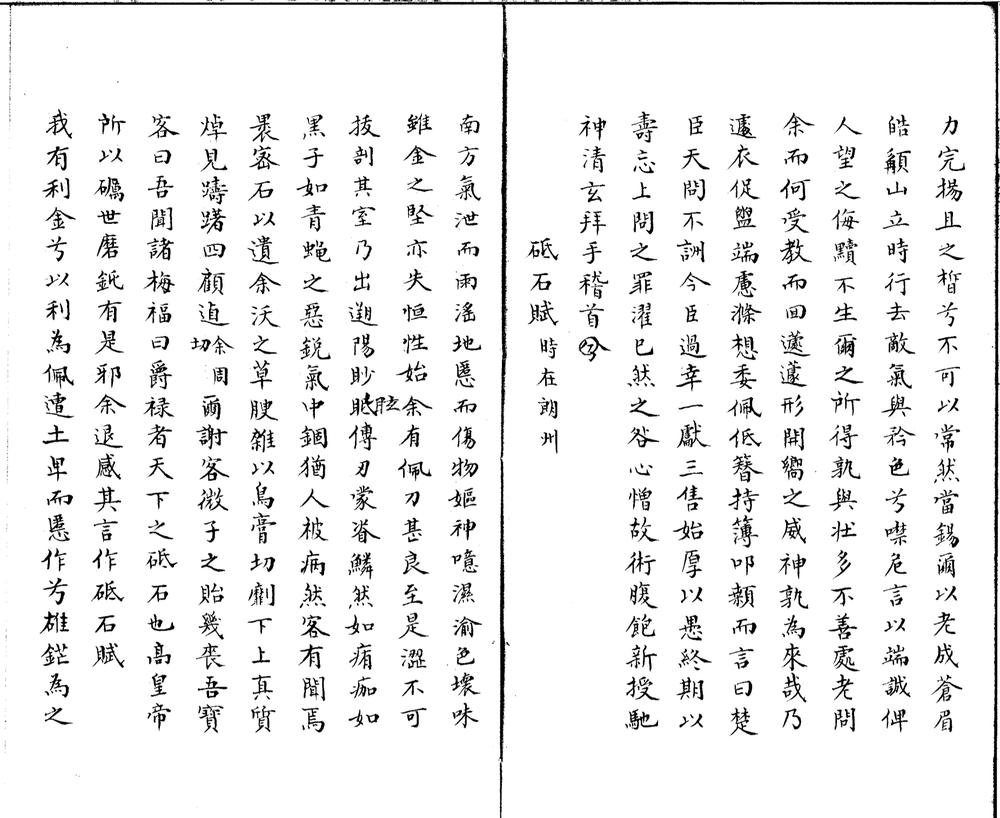 力完揚且之晳兮不可以常然當錫爾以老成蒼眉
皓顧山立時行去敵氣與矜色兮噤危言以端誠俾
人望之侮黷不生爾之所得孰與壯多不善處老問
余而何受教而回邅蘧形開嚮之威神孰為來哉乃
遽衣促盥端慮滌想委佩低簪持簿叩顙而言曰楚
臣天問不訓今臣過幸一獻三售始厚以愚終期以
壽忘上問之罪濯已然之咎心憎故術腹飽新授馳
神清玄拜手稽首
砥石賦 時在朗州
南方氣泄而雨淫地慝而傷物媼神噫濕渝色壞味
雖金之堅亦失恒性始余有佩刀甚良至是澀不可
拔剖其室乃出遡陽眇眡傳刃蒙脊鱗然如痏痂如
黑子如青蠅之惡銳氣中錮猶人被病然客有聞焉
裹密石以遺余沃之草腴雜以鳥膏切劘下上真質
焯見躊躇四顧逌余周切爾謝客微子之貽幾喪吾寶
客曰吾聞諸梅福曰爵祿者天下之砥石也高皇帝
所以礪世磨鈍有是邪余退感其言作砥石賦
我有利金兮以利為佩遭土卑而慝作兮雄鋩為之